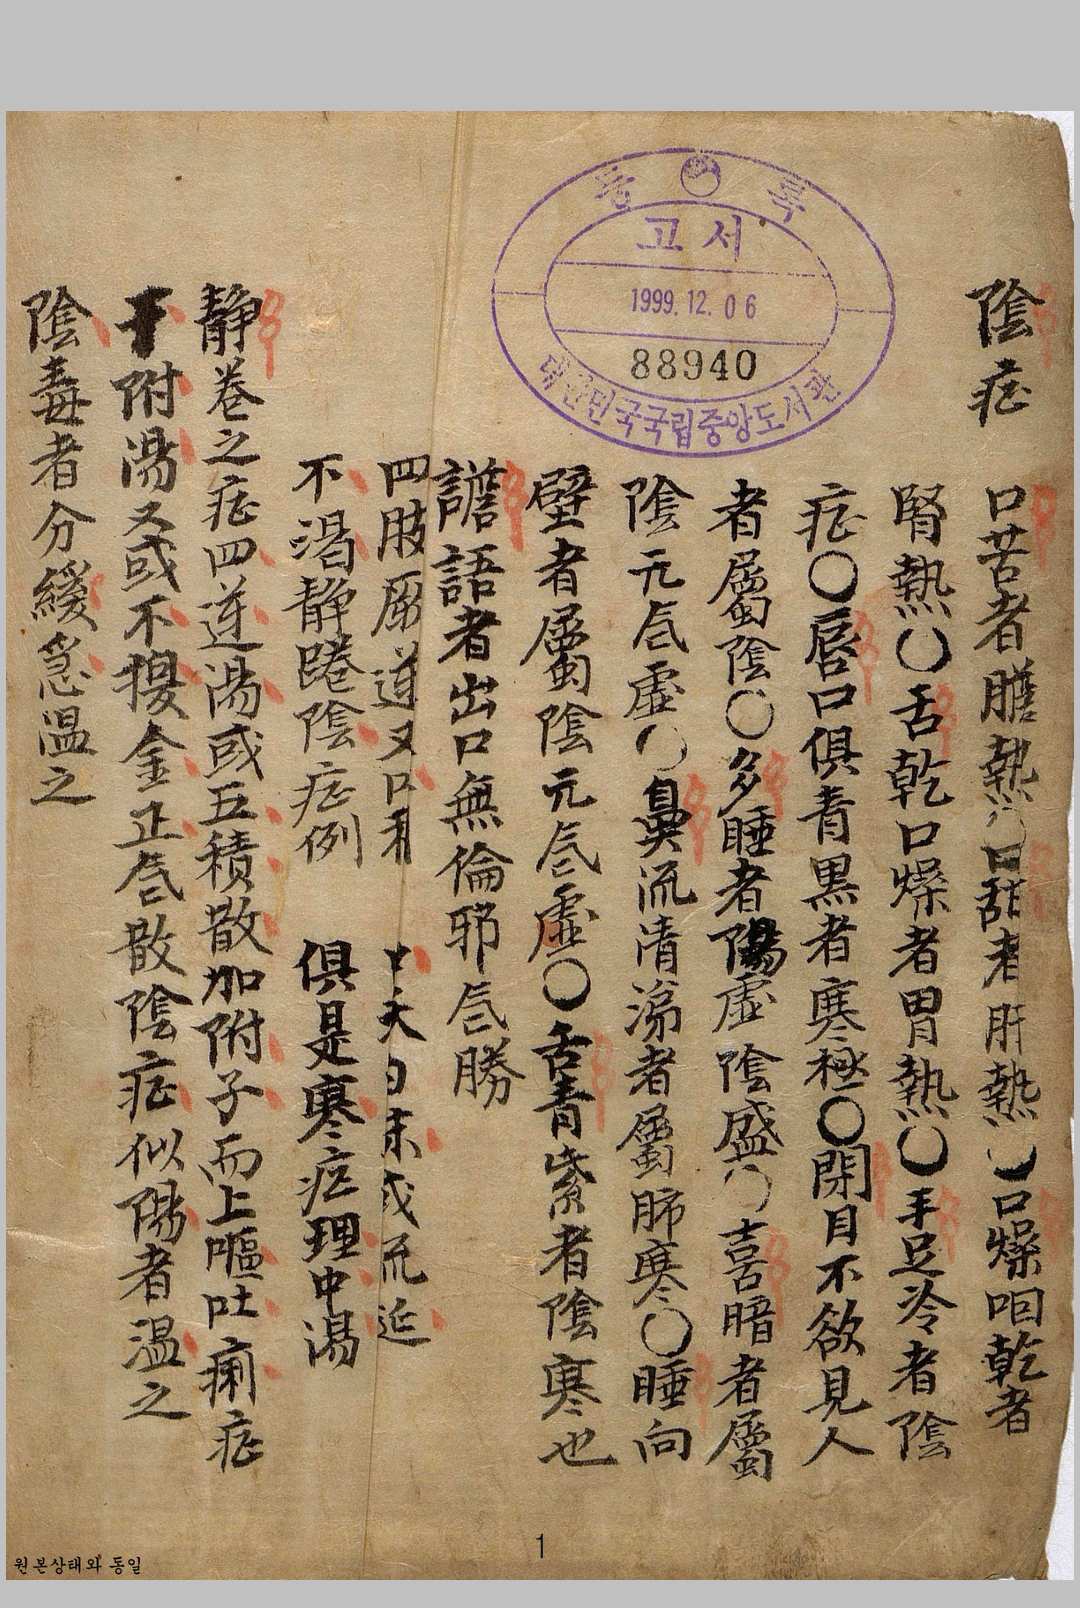 등록
고서
1999.12.06
88940
대한민국국립중앙도서관
陰症
口苦者膽熱〇口甜者肝熱〇口燥咽乾者
腎熱〇舌乾口燥者胃熱〇手足冷者陰
症〇唇口俱青黑者寒極〇閉目不欲見人
者屬陰〇多睡者陽虛陰盛〇喜暗者屬
陰元气虛〇鼻流清涕者屬肺寒〇睡向
壁者屬陰元气虛〇舌青紫者陰寒也
譫語者出口無倫邪气勝
四肢厥逆又
不渴靜睠陰症例 俱是寒症理中湯
靜卷之症四逆湯或五積散加附子而上嘔吐痢症
附湯又或不換金正气散陰症似陽者温之
陰毒者分緩急温之
1
원본상태와 동일